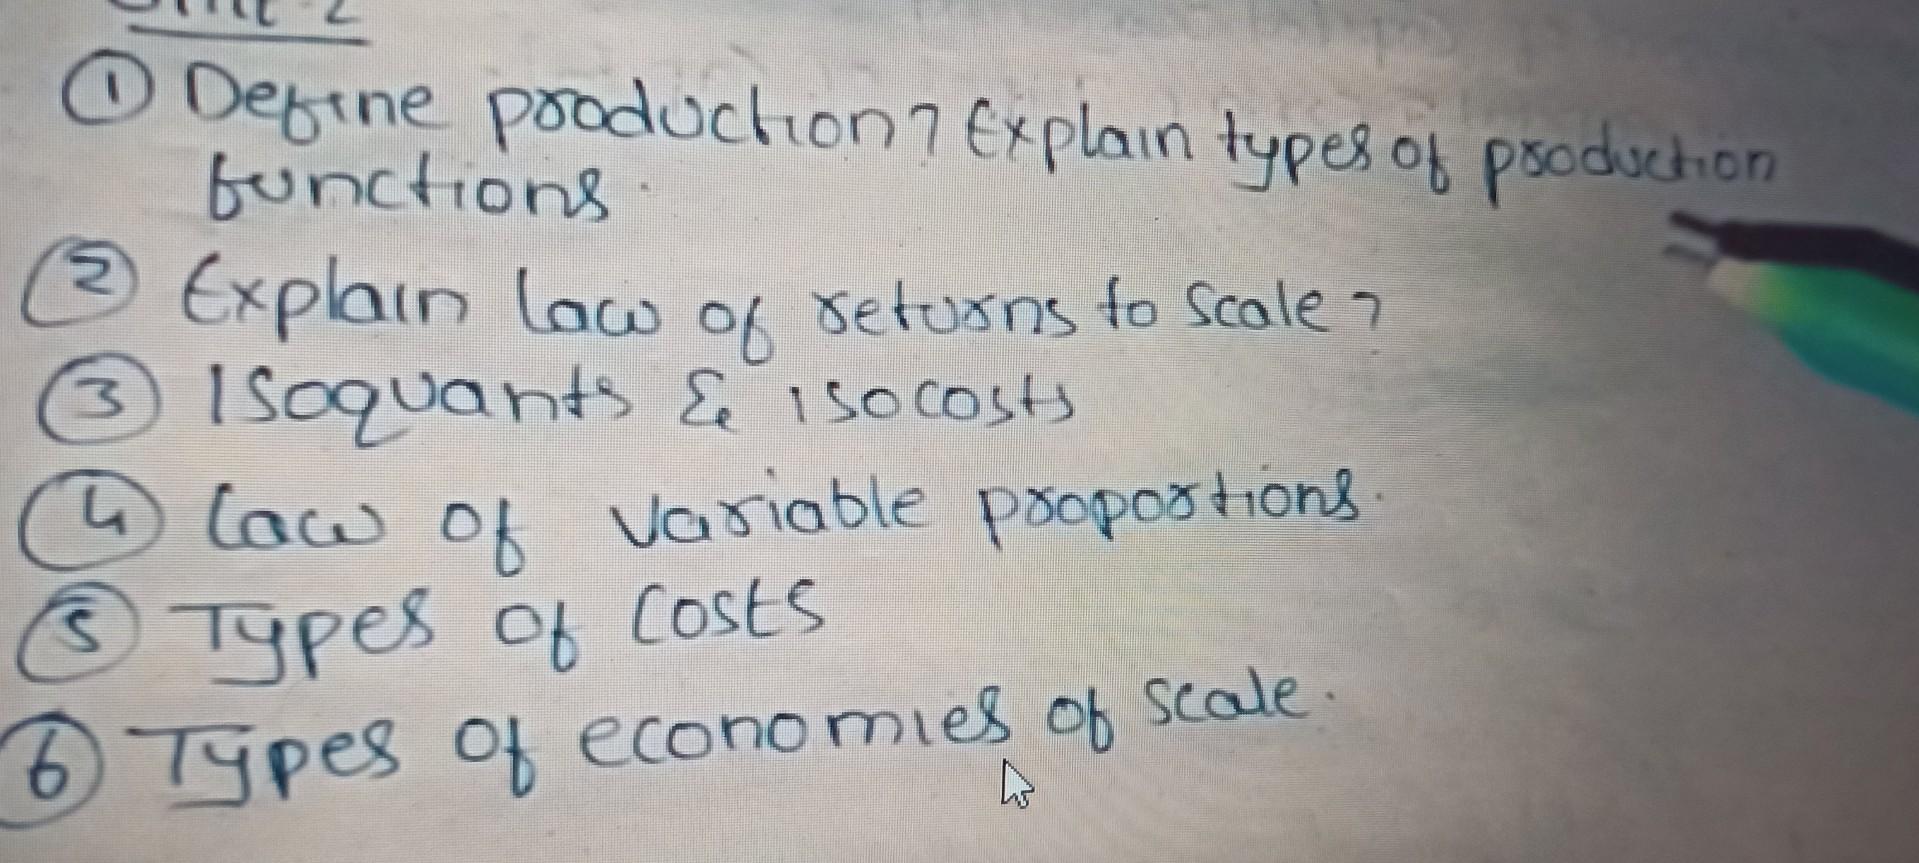 Unit-2
① Define production? Explain types of production
functions.
② Explain law of returns to scale?
③ Isoquants & isocosts
④ Law of variable proportions.
⑤ Types of costs
⑥ Types of economies of scale.